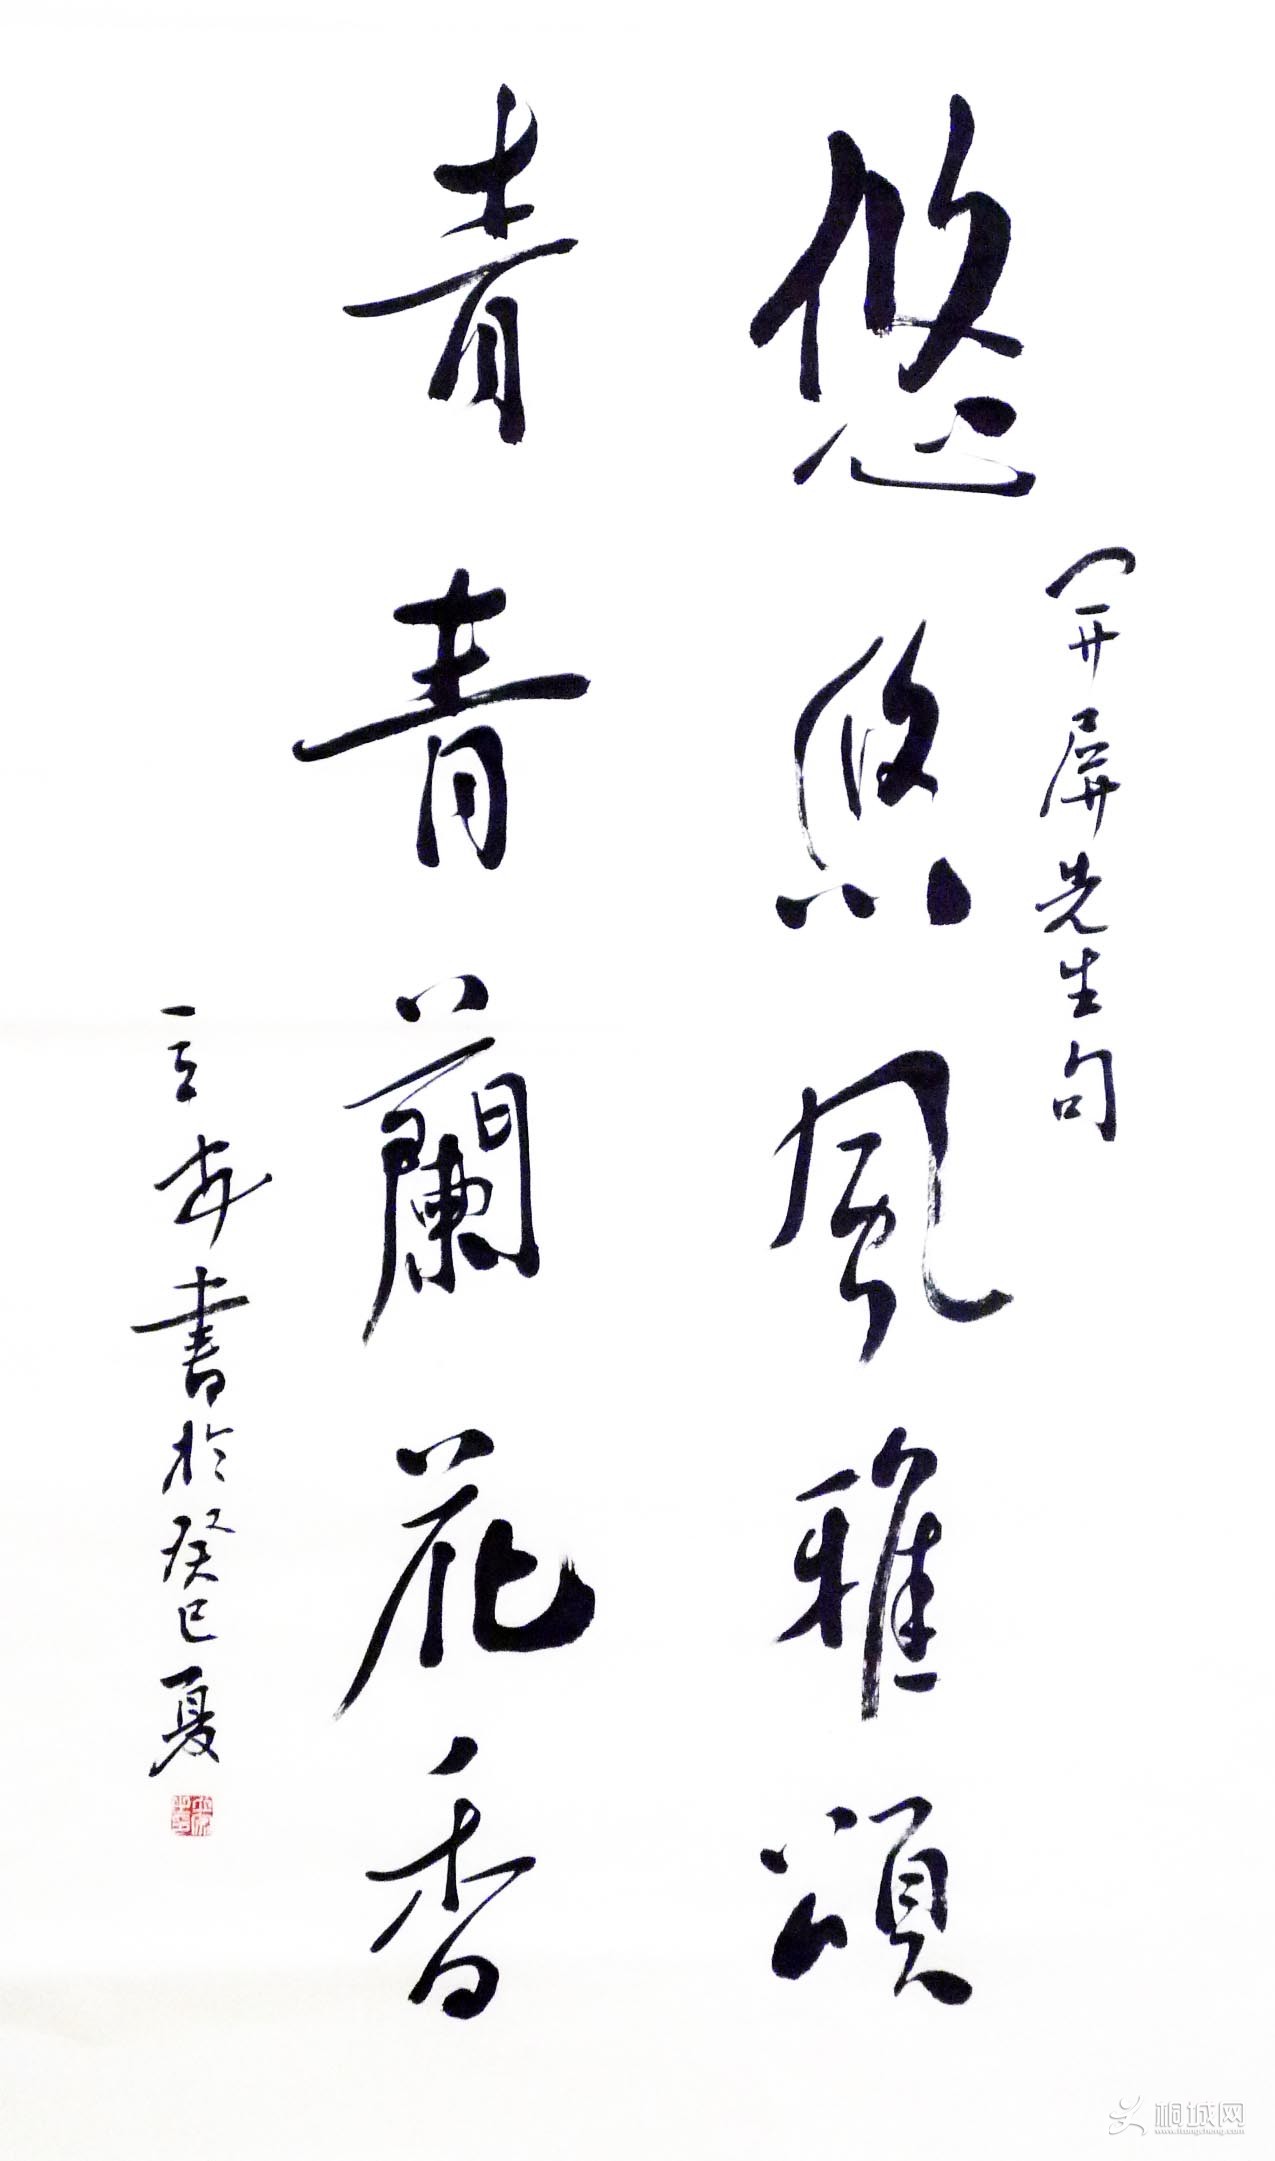 悠悠風雅頌
開屏先生句
青青蘭花香
書於癸巳夏
桐城网
www.itongcheng.com